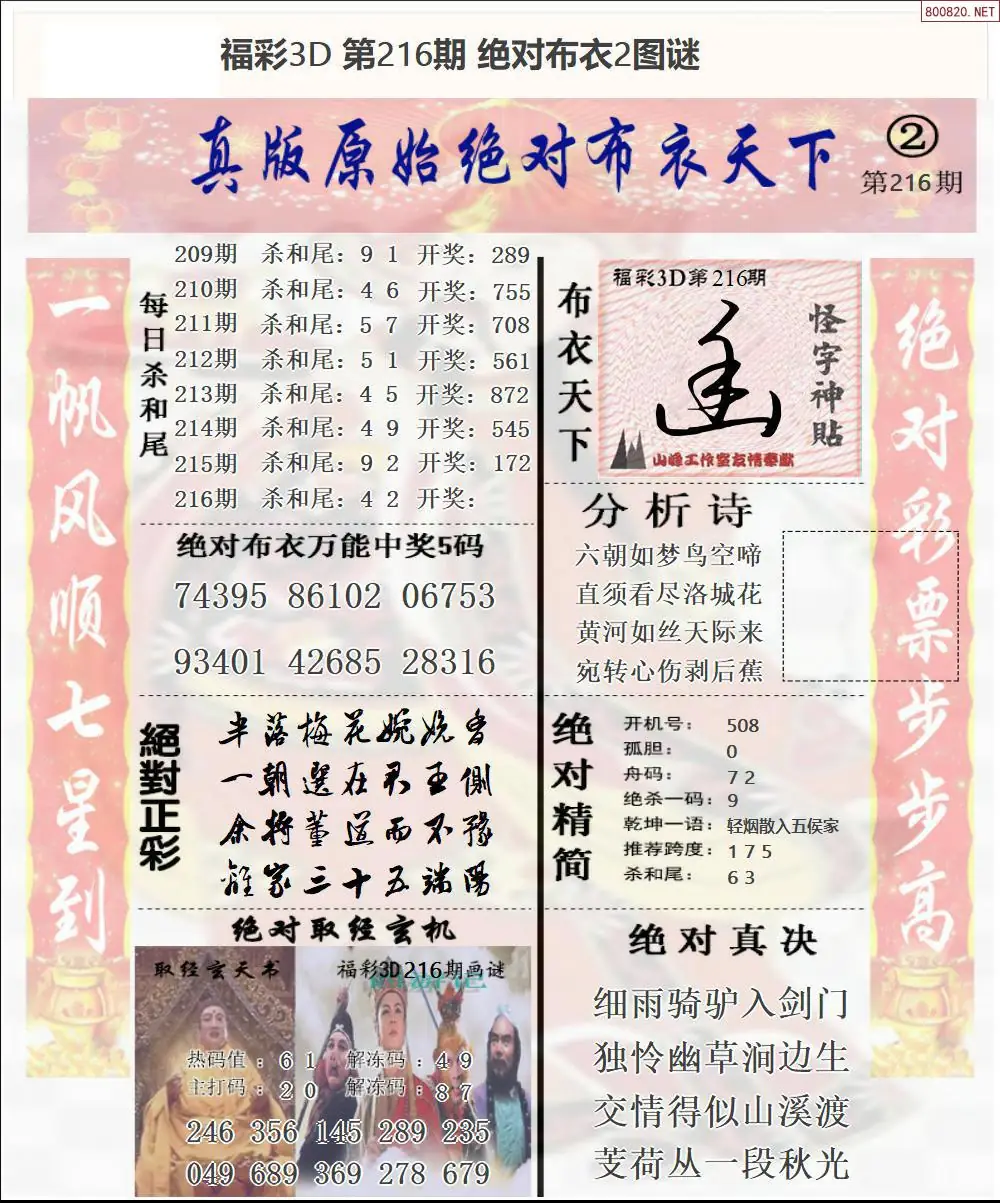 800820.NET
福彩3D 第216期 绝对布衣2图谜
真版原始绝对布衣天下
②
第216期
一帆风顺七星到
每日杀和尾
209期 杀和尾：9 1 开奖：289
210期 杀和尾：4 6 开奖：755
211期 杀和尾：5 7 开奖：708
212期 杀和尾：5 1 开奖：561
213期 杀和尾：4 5 开奖：872
214期 杀和尾：4 9 开奖：545
215期 杀和尾：9 2 开奖：172
216期 杀和尾：4 2 开奖：
绝对布衣万能中奖5码
74395 86102 06753
93401 42685 28316
絕對正彩
半落梅花婉娩香
一朝選在君王側
余将董道而不豫
離家三十五端陽
绝对取经玄机
取经玄天书
福彩3D216期画谜
热码值：6 1 解冻码：4 9
主打码：2 0 解冻码：8 7
246 356 145 289 235
049 689 369 278 679
布衣天下
福彩3D第216期
怪字神貼
山峰工作室友情奉献
分析诗
六朝如梦鸟空啼
直须看尽洛城花
黄河如丝天际来
宛转心伤剥后蕉
绝对精简
开机号：508
孤胆：0
舟码：7 2
绝杀一码：9
乾坤一语：轻烟散入五侯家
推荐跨度：1 7 5
杀和尾：6 3
绝对真决
细雨骑驴入剑门
独怜幽草涧边生
交情得似山溪渡
芰荷丛一段秋光
绝对彩票步步高